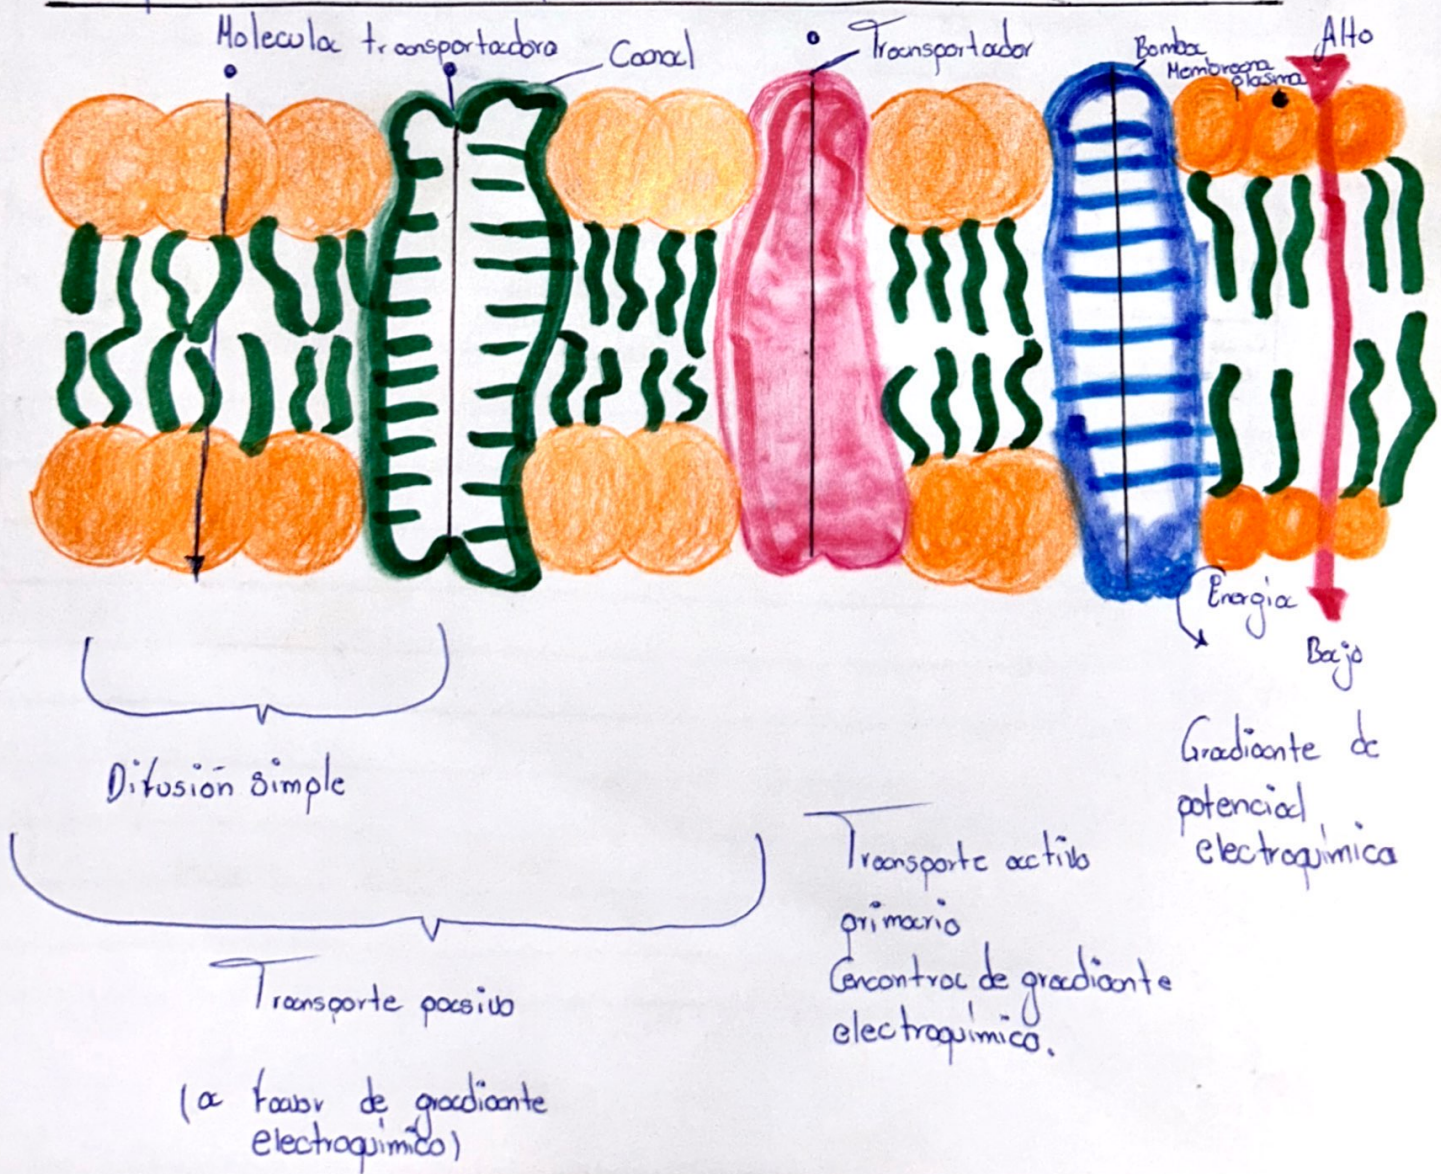 Molecula transportadora
Canal
Transportador
Bomba
Membrana
plasma
Alto
Energia
Bajo
Gradiante de
potencial
electroquimica
Difusión simple
Transporte activo
primario
(encontra de gradiante
electroquímico.
Transporte pasivo
(a favor de gradiante
electroquímico)